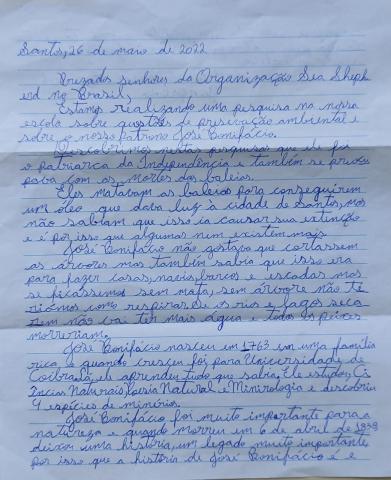 Santos, 26 de maio de 2022
Prezados senhores da Organização Sea Sheph
erd no Brasil,
Estamos realizando uma pesquisa na nossa
escola sobre questões de preservação ambiental e
sobre o nosso patrono José Bonifácio.
Descobrimos nestas pesquisas que ele foi
o patriarca da Independência e também se preocu
pava com as mortes das baleias.
Eles matavam as baleias para conseguirem
um óleo que dava luz à cidade de Santos, mas
não sabiam que isso ia causar sua extinção
e é por isso que algumas nem existem mais.
José Bonifácio não gostava que cortassem
as árvores mas também sabia que isso era
para fazer casas, navios, barcos e escadas mas
se ficássemos sem mata, sem árvore não te
ríamos como respirar. Se os rios e lagos seca
rem não vai ter mais água e todos os peixes
morreriam.
José Bonifácio nasceu em 1763 em uma família
rica e quando cresceu foi para Universidade de
Coibra lá, ele aprendeu tudo que sabia. Ele estudou Ci
ências Naturais, Poesia Natural e Minirologia e descobriu
4 espécies de minérios.
José Bonifácio foi muito importante para a
natureza e quando morreu em 6 de abril de 1838
deixou uma história, um legado muito importante
por isso que a história de José Bonifácio é e